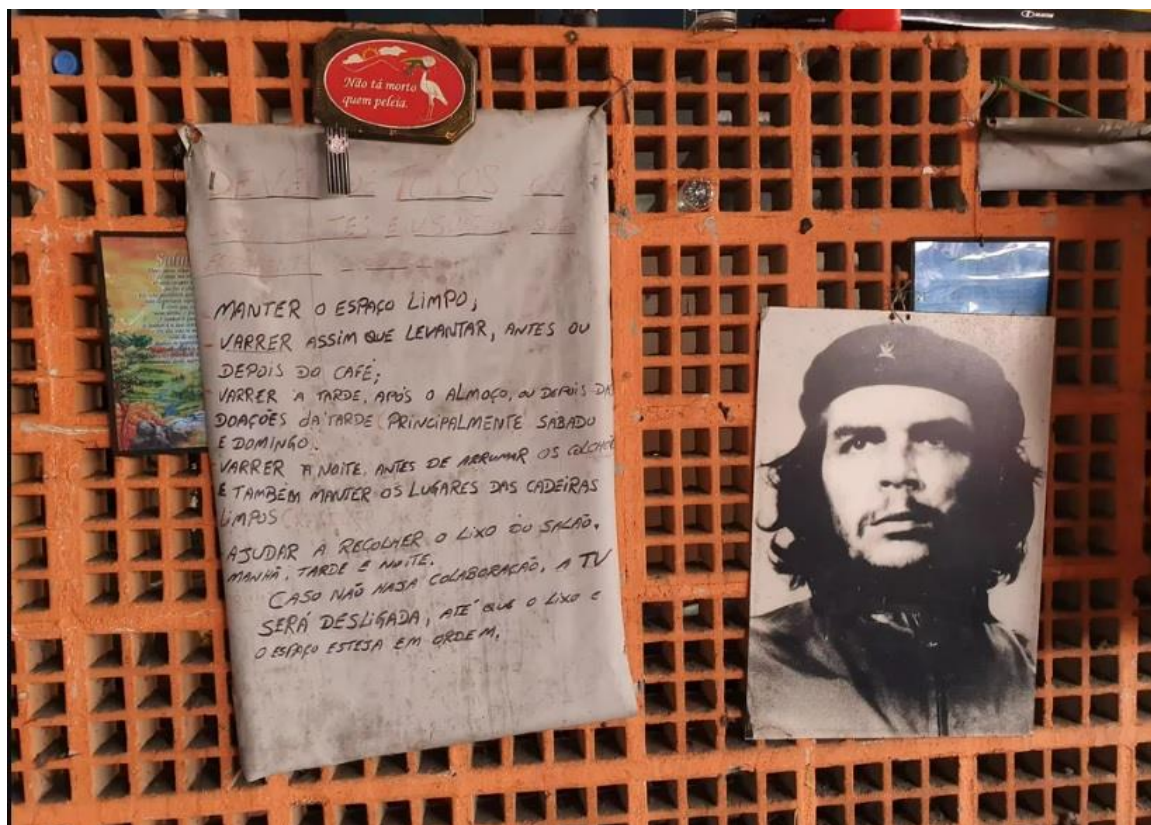 Não tá morto
quem peleia.
TODOS
MANTER O ESPAÇO LIMPO;
VARRER ASSIM QUE LEVANTAR, ANTES OU
DEPOIS DO CAFÉ;
VARRER A TARDE, APÓS O ALMOÇO, OU DEPOIS DAS
DOAÇÕES da TARDE (PRINCIPALMENTE SÁBADO
E DOMINGO.
VARRER A NOITE, ANTES DE ARRUMAR OS
E TAMBÉM MANTER OS LUGARES DAS CADEIRAS
LIMPOS
AJUDAR A RECOLHER O LIXO DO SALÃO,
MANHÃ, TARDE E NOITE.
CASO NÃO HAJA COLABORAÇÃO, A TV
SERÁ DESLIGADA, ATÉ QUE O LIXO E
O ESPAÇO ESTEJA EM ORDEM.